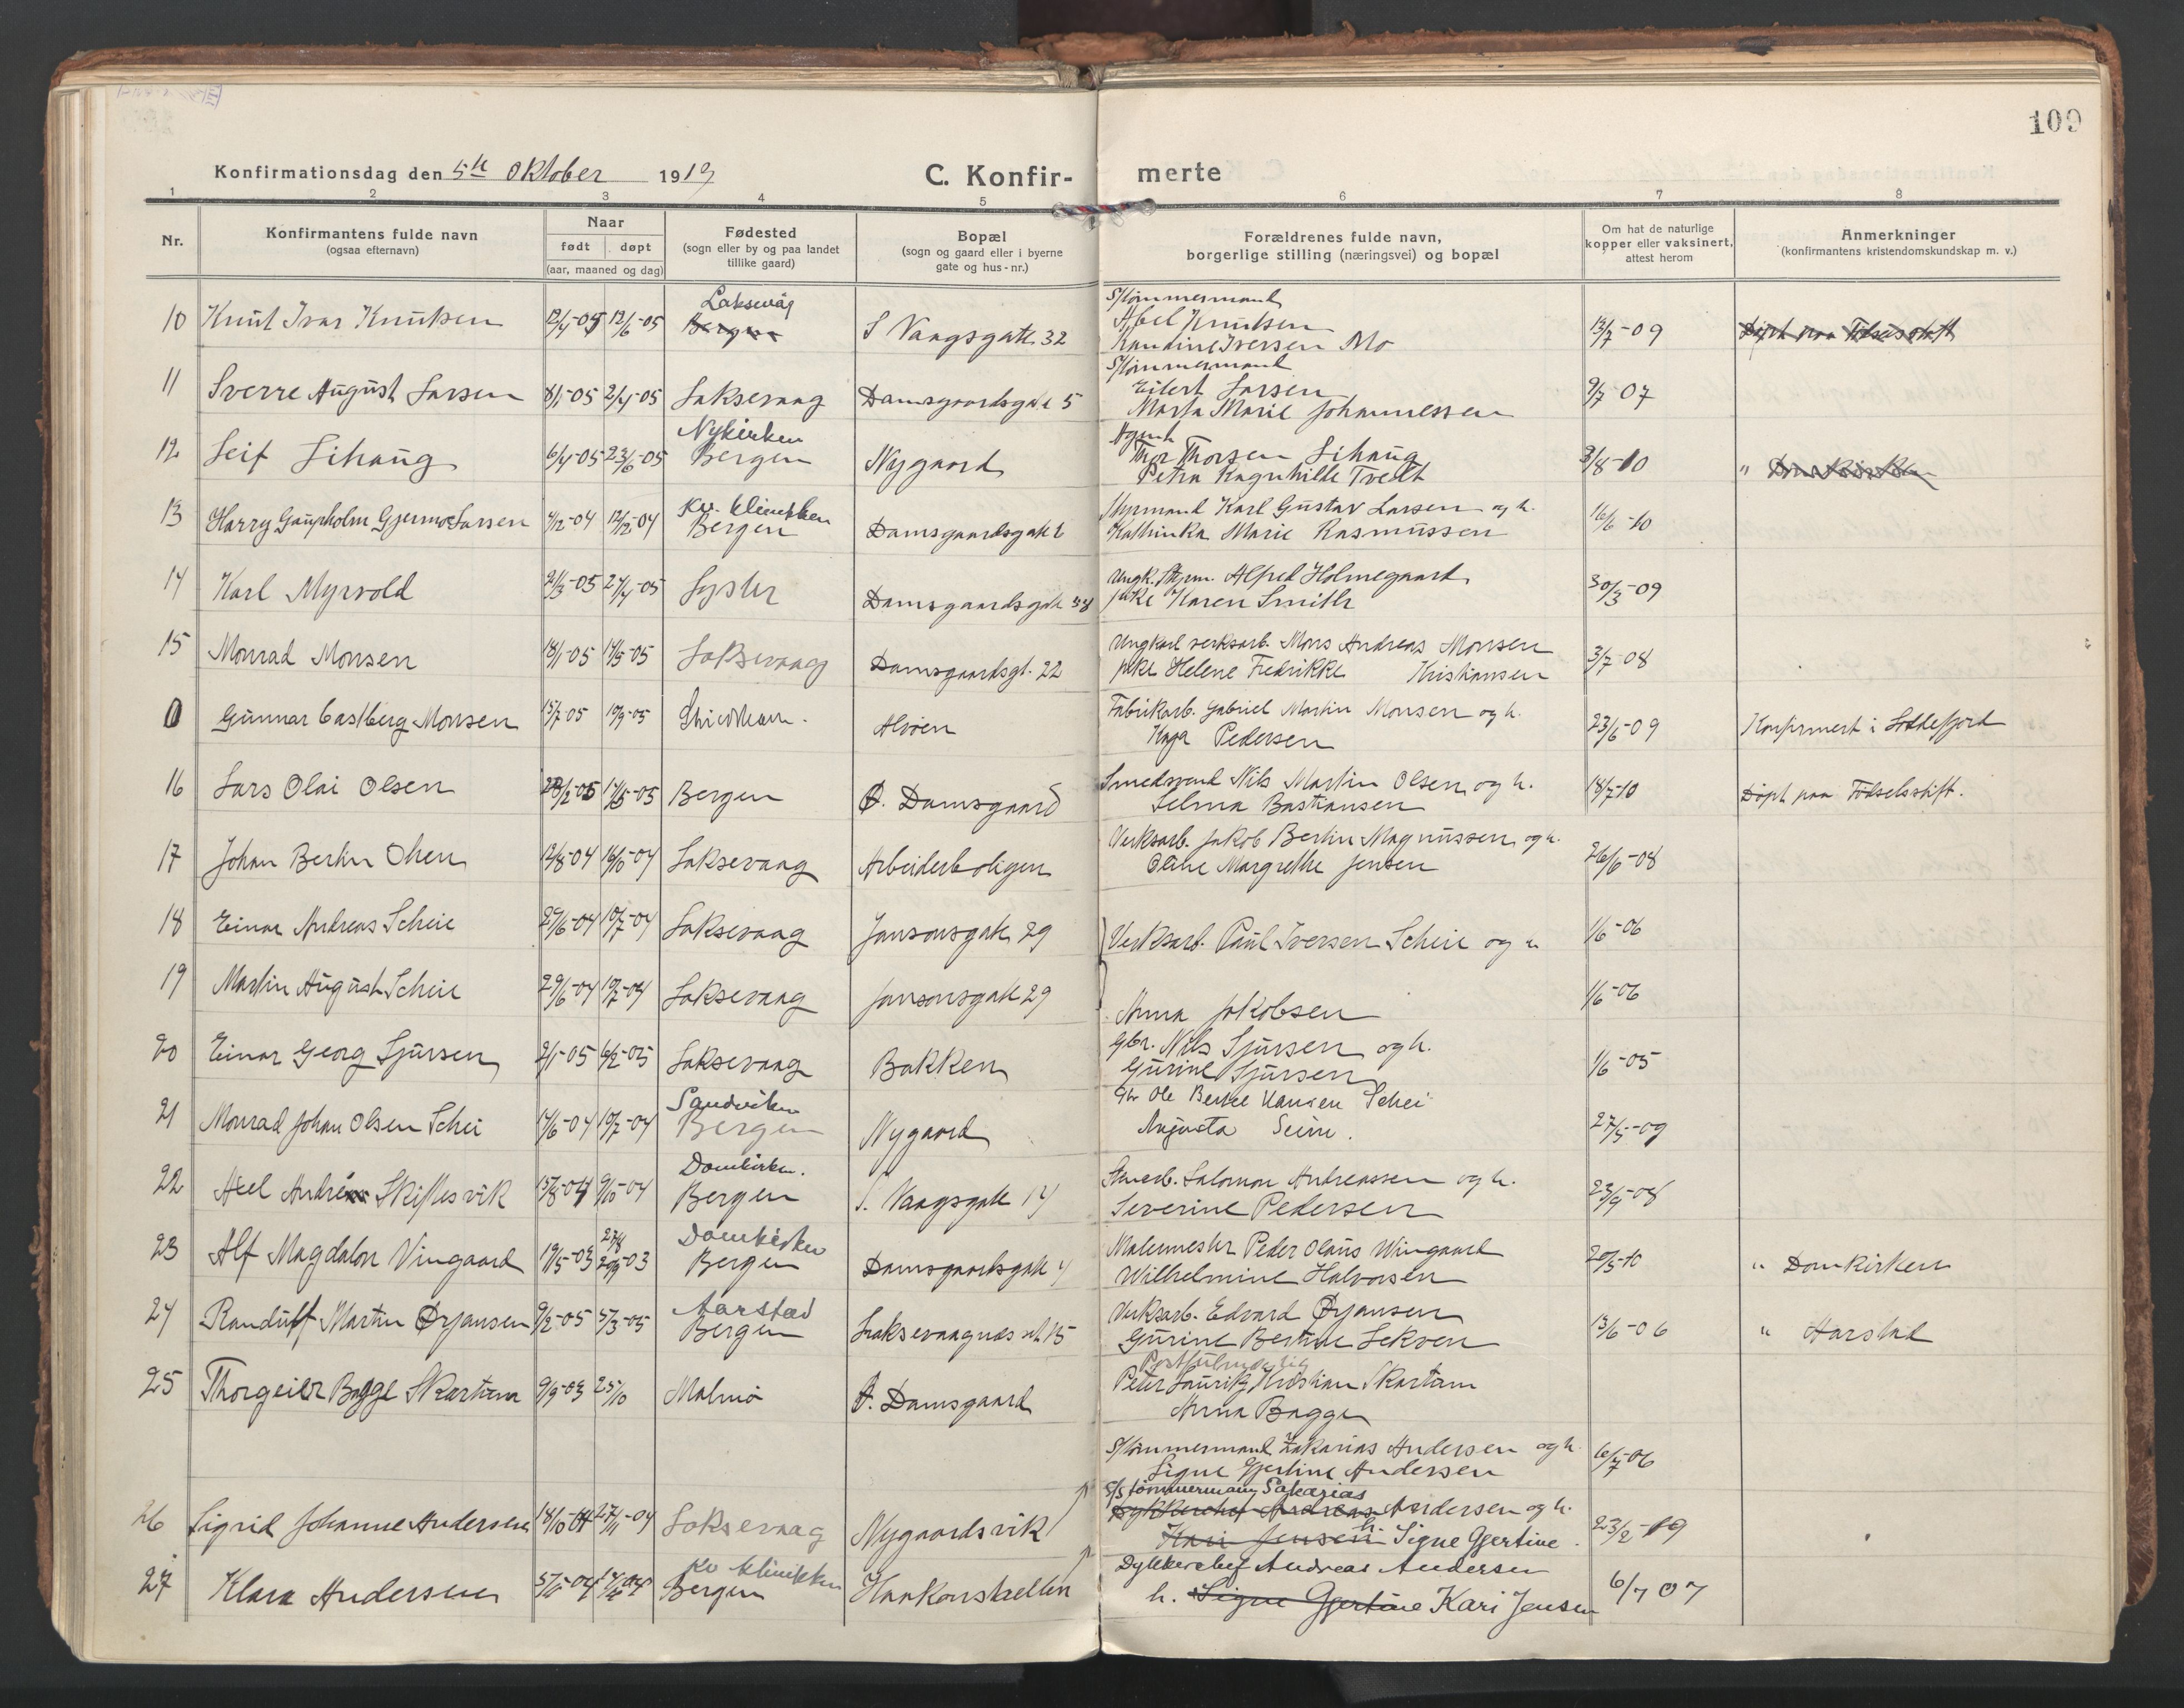 109
Konfirmationsdag den 5te Oktober 1919
C. Konfir- merte
1 2 3 4 5 6 7 8
Nr.
Konfirmantens fulde navn
(ogsaa efternavn)
Naar
født døpt
(aar, maaned og dag)
Fødested
(sogn eller by og paa landet
tillike gaard)
Bopæl
(sogn og gaard eller i byerne
gate og hus-nr.)
Forældrenes fulde navn,
borgerlige stilling (næringsvei) og bopæl
Om hat de naturlige
kopper eller vaksinert,
attest herom
Anmerkninger
(konfirmantens kristendomskundskap m. v.)
10 Knut Ivar Knutsen 12/4-05 12/6-05 Laksevåg Bergen S Vaagsgate 32
S/tømmermand
Abel Knutsen
Iversen Mo
13/7-09 Døpt paa Fødselsstift
11 Sverre August Larsen 8/1-05 2/4-05 Laksevaag Damsgaardsgate 5
S/tømmermand
Eilert Larsen
Marta Marie Johannessen
9/7 07
12 Leif Lihaug 6/4-05 23/6-05 Nykirken Bergen Nygaard
Agent
Thor Thorsen Lihaug
Petra Ragnhilde Tvedt
3/8-10 " Domkirken
13 Harry Gjermoe Larsen 4/12-04 12/12-04 Kv. klinikken Bergen Damsgaardsgate
Styrmand Karl Gustav Larsen og h.
Kathinka Marie Rasmussen
16/6-10
14 Karl Myrvold 2/3-05 24/4-05 Lyster Damsgaardsgate 58
Ungk. Styrm. Alfred Holmegaard
pike Karen Smith
30/3-09
15 Monrad Monsen 18/1-05 14/5-05 Laksevaag Damsgaardsgt. 22
Ungkarl verksarb. Mons Andreas Monsen
pike Helene Fredrikke Kristiansen
3/7-08
0 Gunnar Castberg Monsen 15/7-05 10/9-05 Alvøen
Fabrikarb. Gabriel Martin Monsen og h.
Inga Pedersen
23/6-09 Konfirmert i Loddefjord
16 Lars Olai Olsen 28/2-05 14/5-05 Bergen Ø. Damsgaard
Smedsvend Nils Martin Olsen og h.
Selma Bastiansen
18/7-10 Døpt paa Fødselsstift.
17 Johan Bertin Olsen 12/8-04 16/10-04 Laksevaag Arbeiderboligen
Verksarb. Jakob Bertin Magnussen og h.
Oline Margrethe Jensen
26/6-08
18 Einar Andreas Scheie 29/6-04 10/7-04 Laksevaag Jansonsgate 29
Verksarb. Paul Iversen Scheie og h
1/6-06
19 Martin August Scheie 29/6-04 10/7-04 Laksevaag Jansonsgate 29
Anna Jakobsen
1/6-06
20 Einar Georg Sjursen 2/1-05 6/2-05 Laksevaag Bakken
Gbr. Nils Sjursen og h.
Gurine Sjursen
1/6-05
21 Monrad Johan Olsen Schei 14/6-04 10/7-04 Sandviken Bergen Nygaard
Gbr Ole Hansen Schei
Augusta Seim.
27/5-09
22 Axel Andreas Skiftesvik 15/8-04 9/10-04 Domkirken. Bergen S. Vaagsgate 14
Stenarb. Salomon Andreassen og h.
Severine Pedersen
23/9-08
23 Alf Magdalon Vingaard 19/5-03 27/8 20/9-03 Domkirken Bergen Damsgaardsgate 4
Malermester Peder Olaus Wingaard
Wilhelmine Halvorsen
20/5-10 " Domkirken
24 Randulf Martin Ørjansen 9/2-05 5/3-05 Aarstad Bergen Laksevaagnes 15
Verksarb. Edvard Ørjansen
Gurine Bertine Lekven
13/6-06 " Aarstad
25 Thorgeir Bagge Skartum 9/9-03 25/10 Malmö Ø. Damsgaard
Postfuldmægtig
Peter Lauritz Kristian Skartum
Anna Bagge
S/tømmermand Zakarias Andersen og h.
Signe Gjertine Andersen
6/7-06
26 Sigrid Johanne Andersen 18/10-04 27/11-04 Laksevaag Nygaardsvik
S/s tømmermann Sakarias
Dykkerchef Andreas Andersen og h.
Kari Jensen h. Signe Gjertine
23/2-19
27 Klara Andersen Kv klinikken Bergen Haakonstrellen
Dykkerchef Andreas Andersen
h. Signe Gjertine Kari Jensen
6/7 07